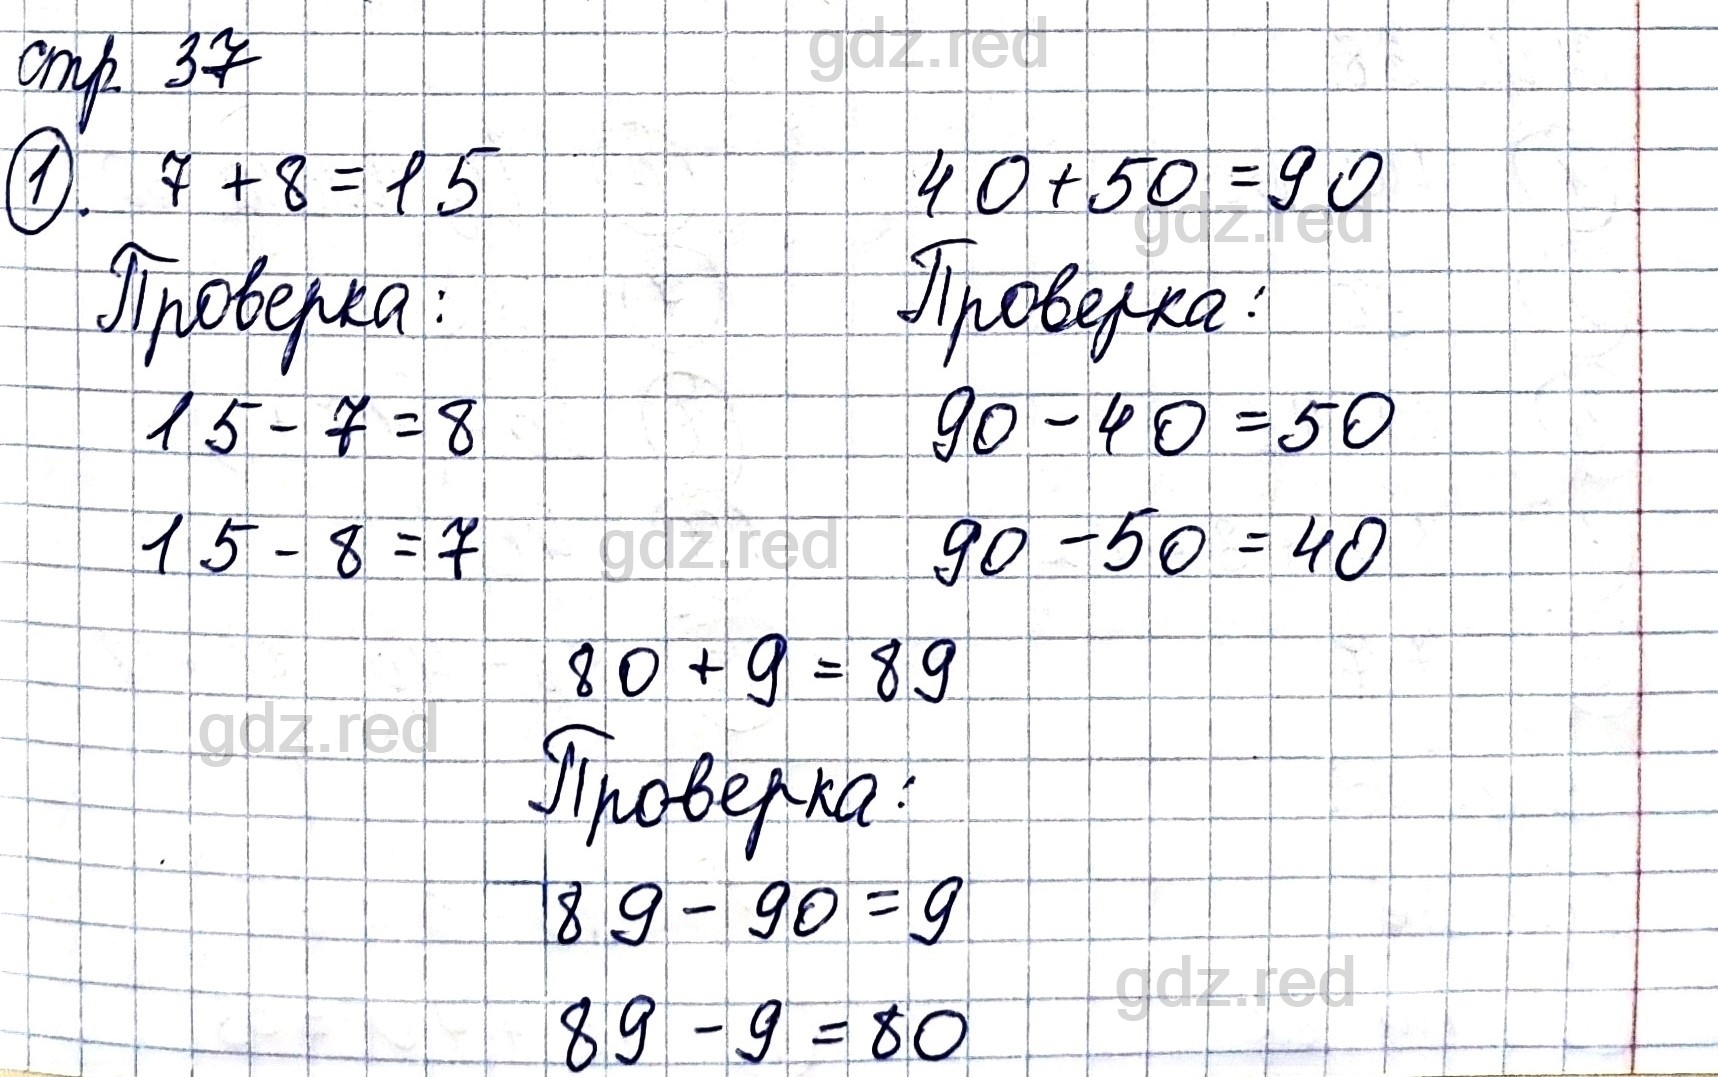 gdz.red
стр 37
1. 7 + 8 = 15
Проверка:
15 - 7 = 8
15 - 8 = 7
40 + 50 = 90
gdz.red
Проверка:
90 - 40 = 50
90 - 50 = 40
gdz.red
80 + 9 = 89
gdz.red
Проверка:
89 - 90 = 9
89 - 9 = 80
gdz.red